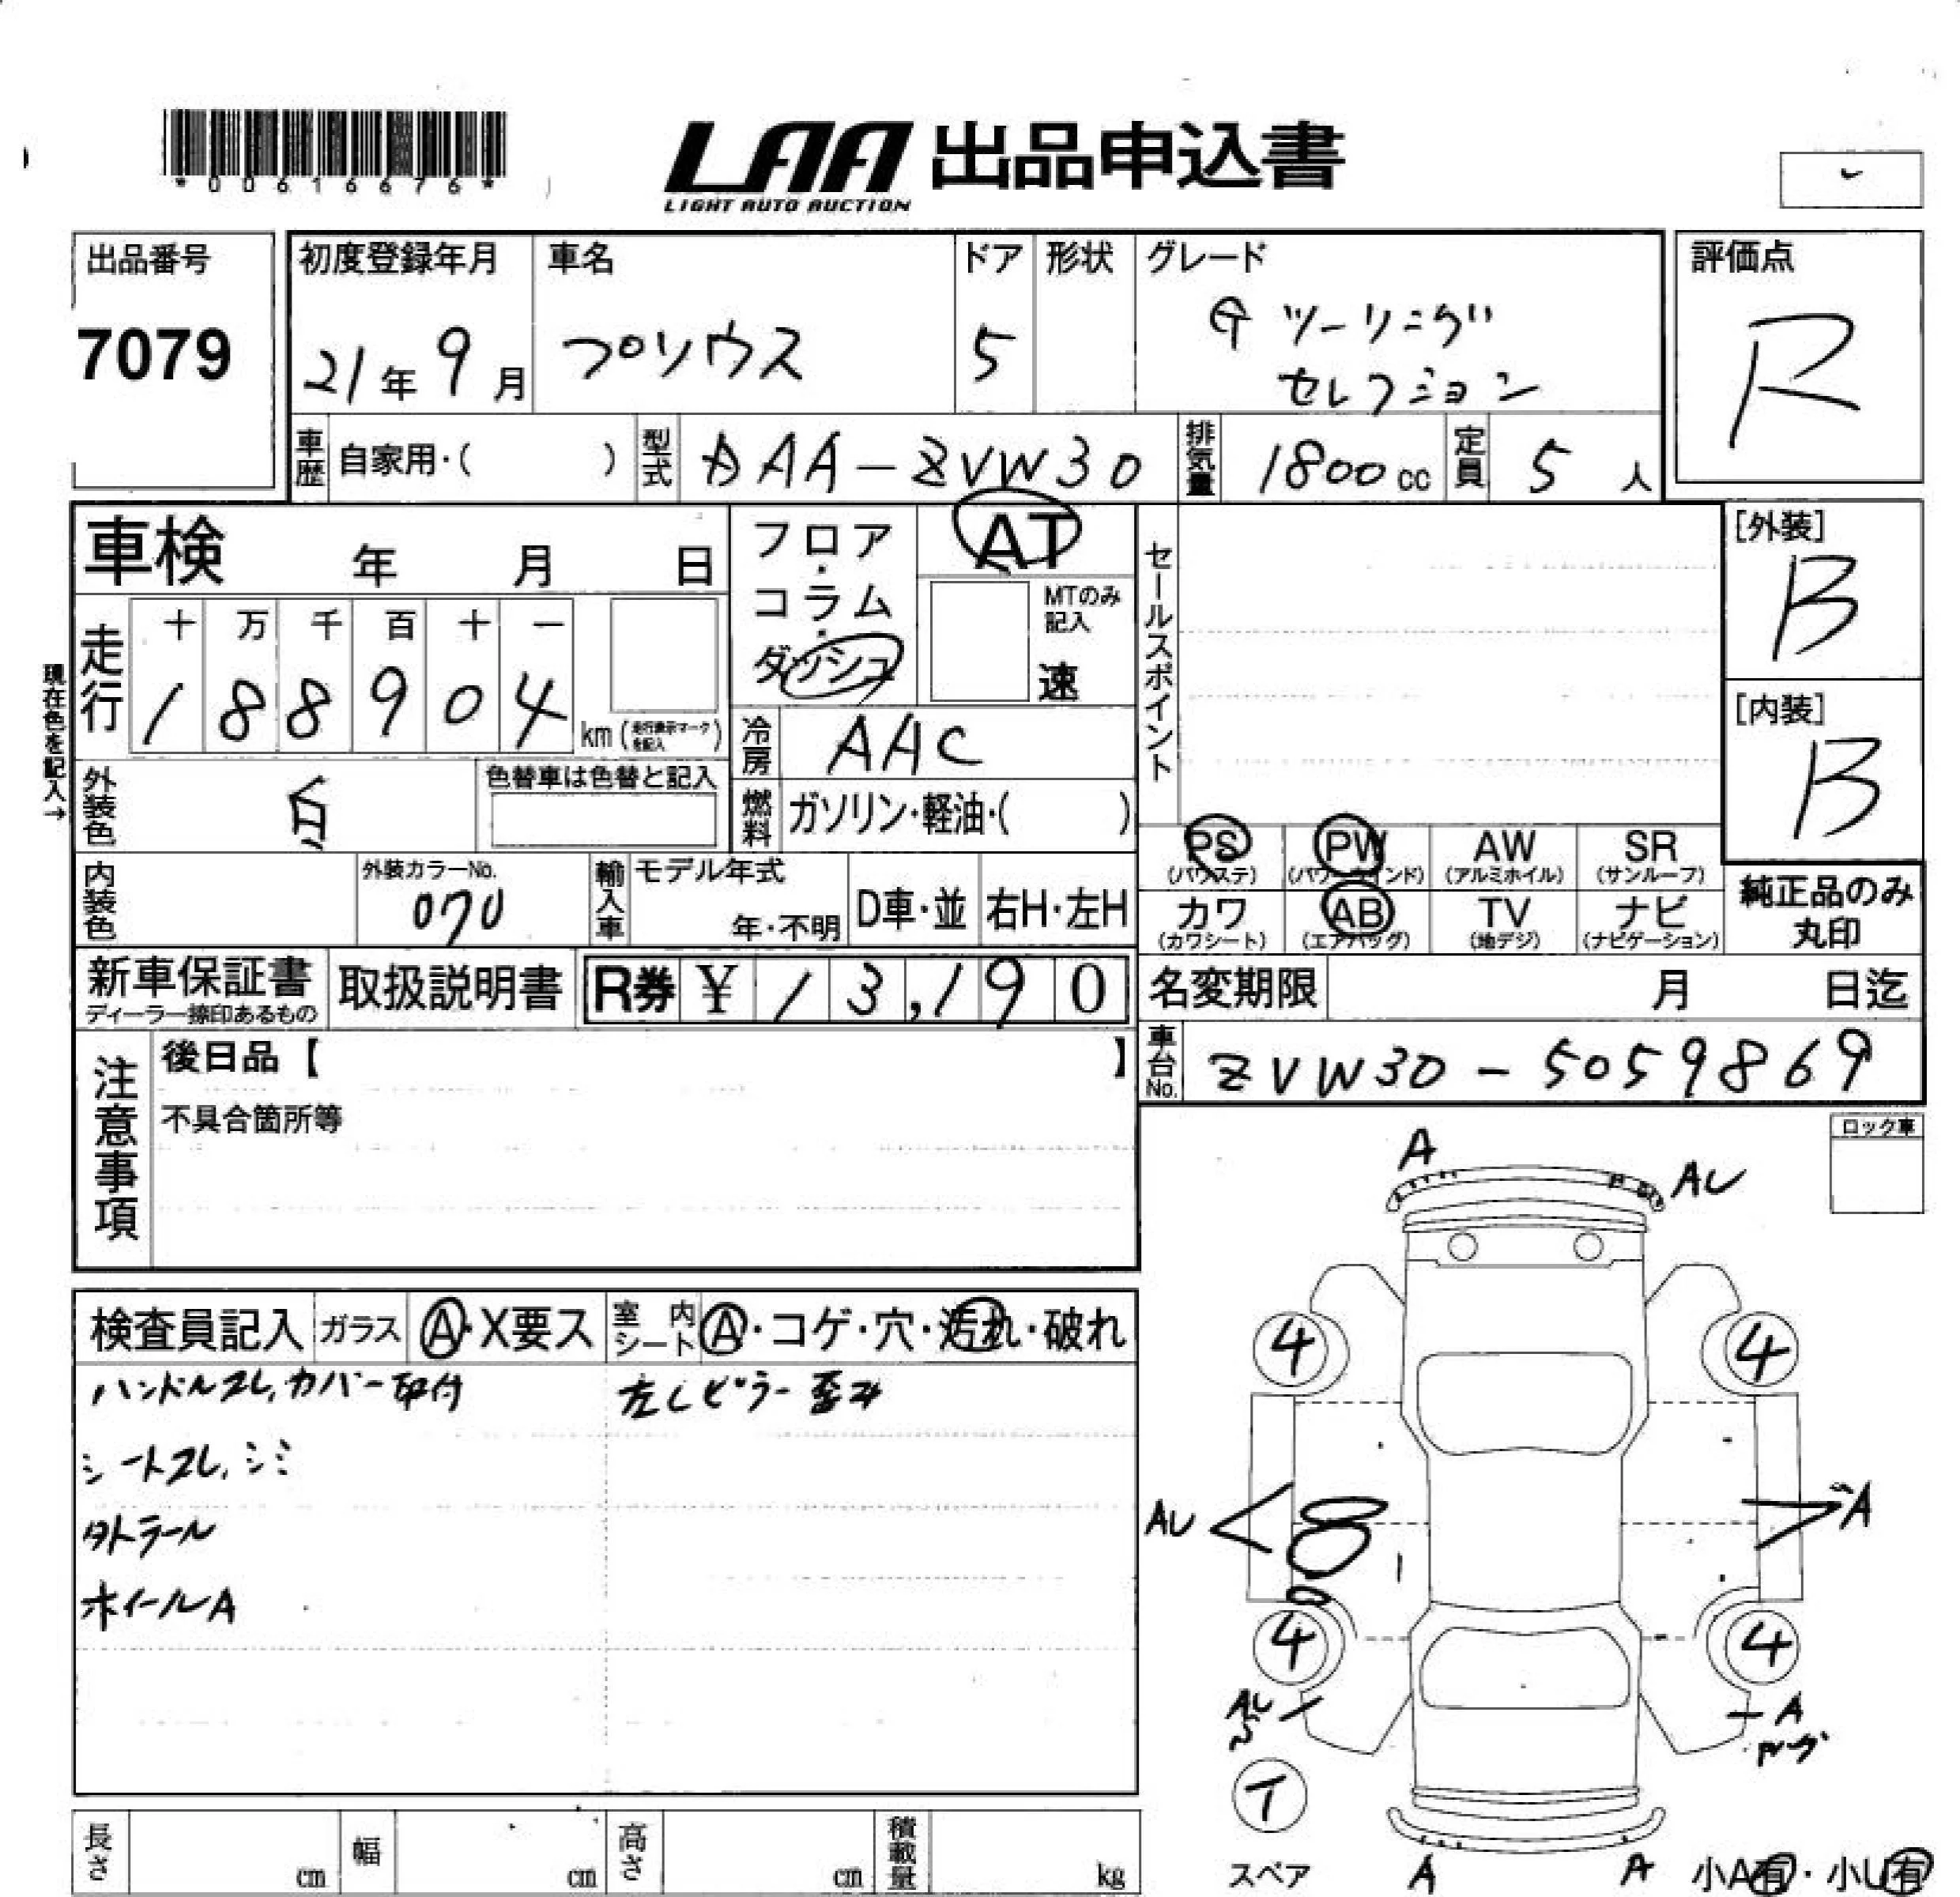 *00616676*
LAA 出品申込書
LIGHT AUTO AUCTION
出品番号
7079
初度登録年月
21年 9月
車名
プリウス
ドア
5
形状
グレード
G ツーリング
セレクション
評価点
R
車歴 自家用・( )
型式 DAA-ZVW30
排気量 1800cc
定員 5人
車検 年 月 日
フロア・コラム・ダッシュ
AT
MTのみ記入
速
セールスポイント
[外装]
B
[内装]
B
現在色を記入→
走行
十 万 千 百 十 一
1 8 8 9 0 4 km (走行表示マークを記入)
冷房 AAC
外装色 白
色替車は色替と記入
燃料 ガソリン・軽油・( )
内装色
外装カラーNo.
070
輸入車
モデル年式
年・不明
D車・並
右H・左H
PS (パワステ)
PW (パワーウインド)
AW (アルミホイル)
SR (サンルーフ)
カワ (カワシート)
AB (エアバッグ)
TV (地デジ)
ナビ (ナビゲーション)
純正品のみ
丸印
新車保証書
ディーラー捺印あるもの
取扱説明書
R券 ¥ 13,190
名変期限 月 日迄
車台No. ZVW30-5059869
注意事項
後日品【 】
不具合箇所等
ロック車
検査員記入
ガラス
A・X要ス
室内シート
A・コゲ・穴・汚れ・破れ
ハンドルスレ,カバー取付
左Cピラー歪み
シートスレ,シミ
タトラール
ホイールA
A
AU
4
4
AU
A
4
4
AU
A
T
スペア
A
A
小A有・小U有
長さ cm
幅 cm
高さ cm
積載量 kg